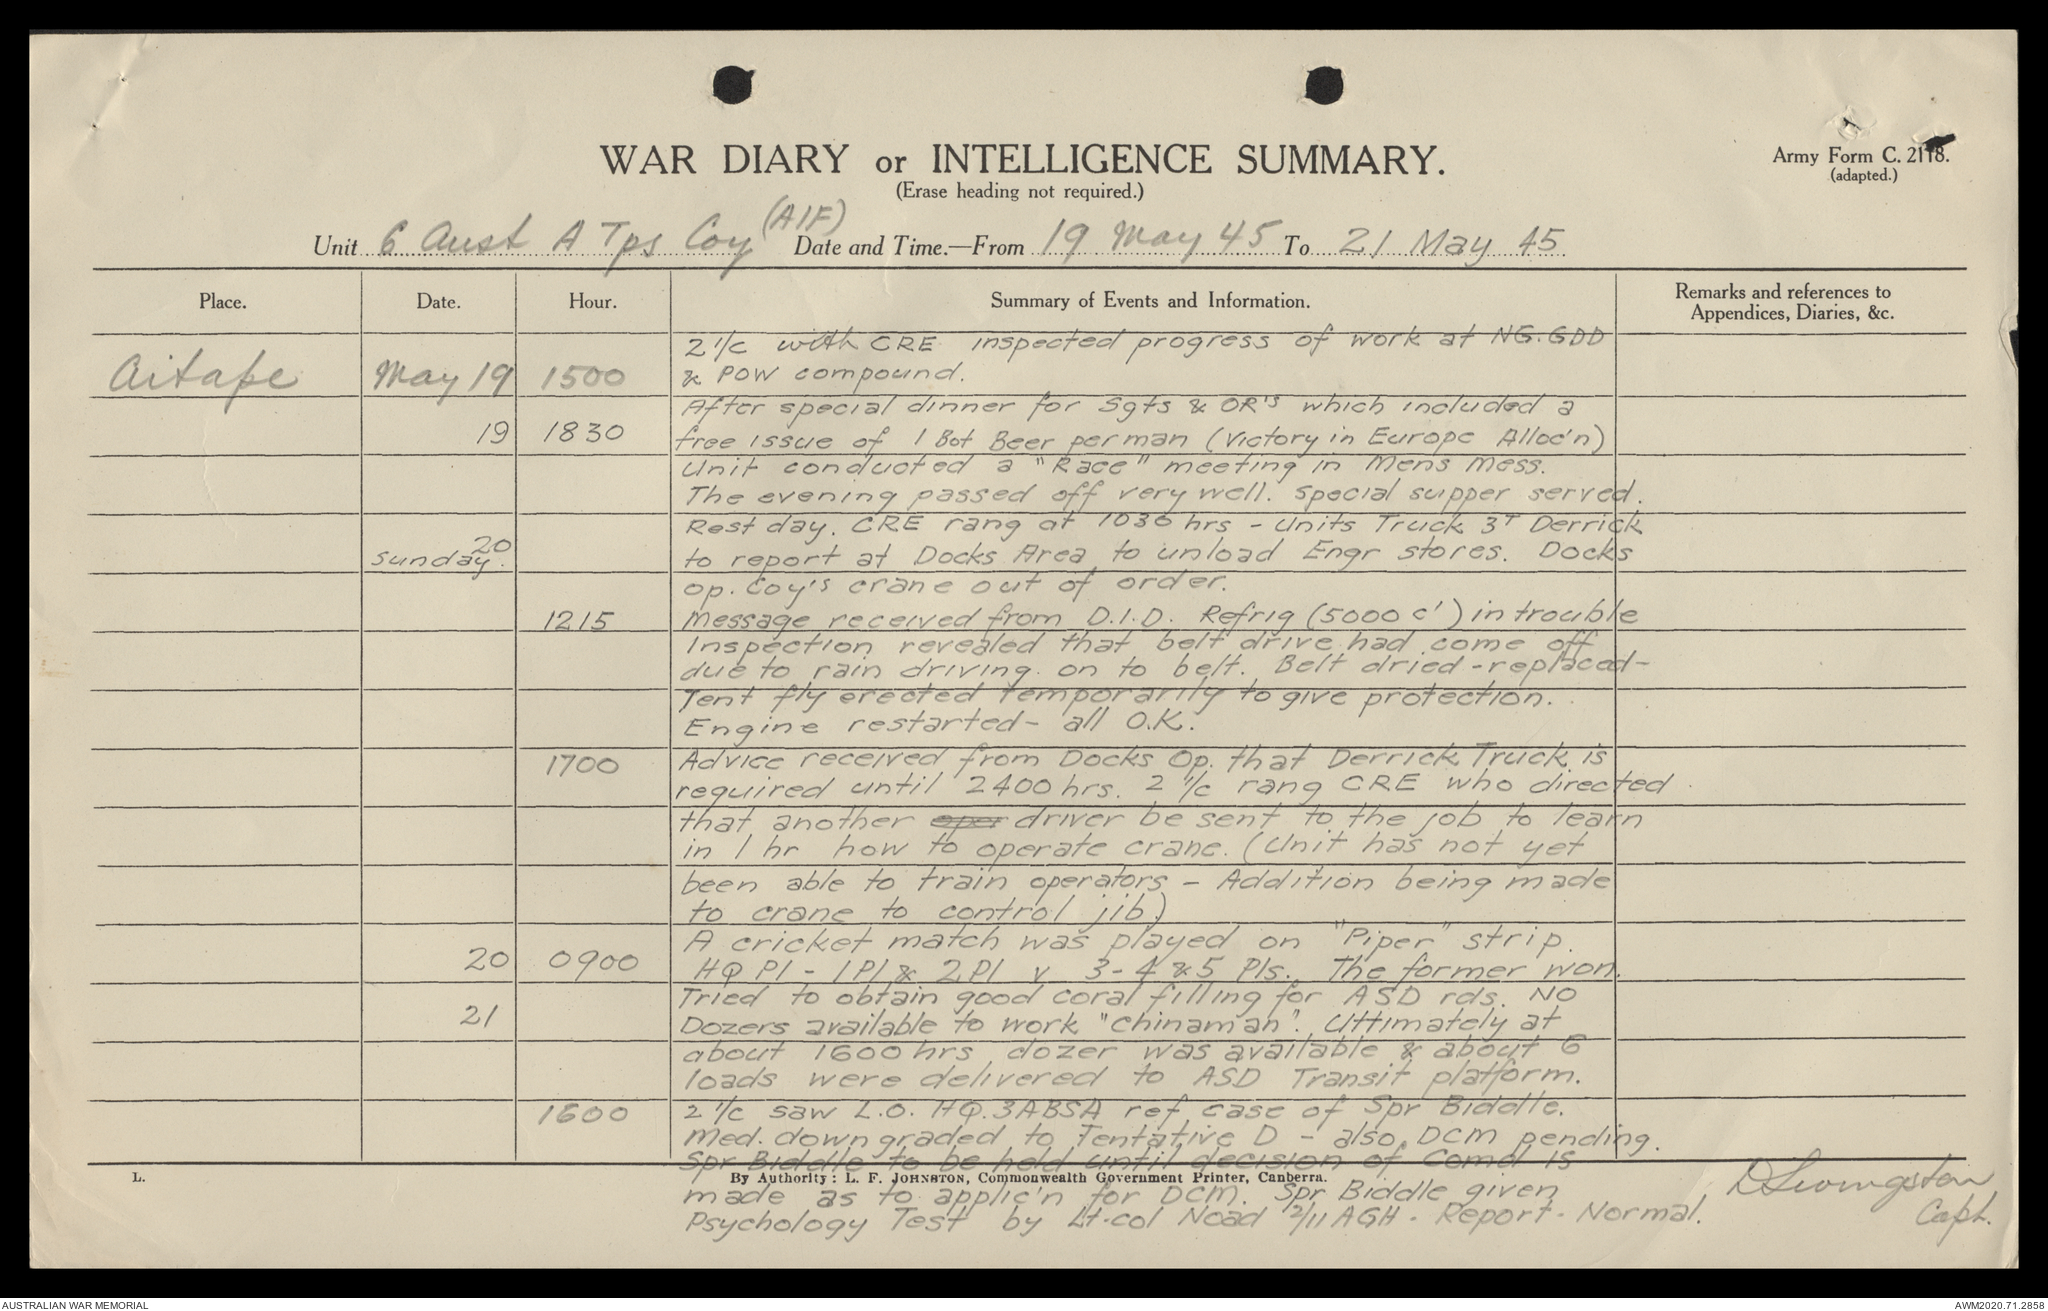 WAR DIARY or INTELLIGENCE SUMMARY.
(Erase heading not required.)
Army Form C. 2118.
(adapted.)
Unit 6 Aust A Tps Coy (AIF) Date and Time.—From 19 May 45 To 21 May 45
Place.
Date.
Hour.
Summary of Events and Information.
Remarks and references to
Appendices, Diaries, &c.
Aitape May 19 1500 2 i/c with CRE inspected progress of work at NG. GDD
& POW compound.
After special dinner for Sgts & OR's which included a
19 1830 free issue of 1 Bot Beer per man (Victory in Europe Alloc'n)
Unit conducted a "Race" meeting in Mens Mess.
The evening passed off very well. Special supper served.
20 Sunday. Rest day. CRE rang at 1030 hrs - Units Truck 3T Derrick
to report at Docks Area to unload Engr stores. Docks
op. Coy's crane out of order.
1215 Message received from D.I.D. Refrig (5000 c') in trouble
Inspection revealed that belt drive had come off
due to rain driving on to belt. Belt dried - replaced -
Tent fly erected temporarily to give protection.
Engine restarted - all O.K.
1700 Advice received from Docks Op. that Derrick Truck is
required until 2400 hrs. 2 i/c rang CRE who directed
that another oper driver be sent to the job to learn
in 1 hr how to operate crane. (Unit has not yet
been able to train operators - Addition being made
to crane to control jib)
A cricket match was played on "Piper" strip.
20 0900 HQ Pl - 1Pl & 2Pl v 3-4 & 5 Pls. The former won.
Tried to obtain good coral filling for ASD rds. No
21 Dozers available to work "Chinaman". Uttimately at
about 1600 hrs dozer was available & about 6
loads were delivered to ASD Transit platform.
1600 2 i/c saw L.O. HQ. 3ABSA ref case of Spr Biddle.
Med. down graded to Tentative D - also DCM pending.
Spr Biddle to be held until decision of Comd is
L.
By Authority: L. F. JOHNSTON, Commonwealth Government Printer, Canberra.
made as to applic'n for DCM. Spr Biddle given
Psychology Test by Lt-col Noad 2/11 AGH - Report - Normal.
D Livingston
Capt.
AUSTRALIAN WAR MEMORIAL
AWM2020.71.2858